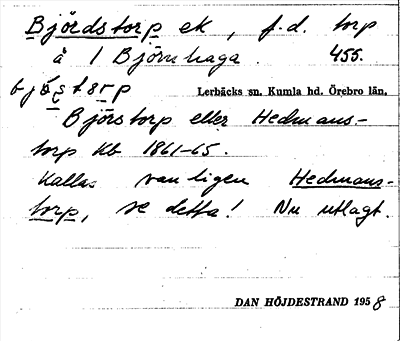 Björdstorp ek, f.d. torp
å 1 Björnhaga. 455.
Lerbäcks sn. Kumla hd. Örebro län.
Björstorp eller Hedmans-
torp kb 1861-65.
Kallas vanligen Hedmans-
torp, se detta! Nu utlagt.
DAN HÖJDESTRAND 1958